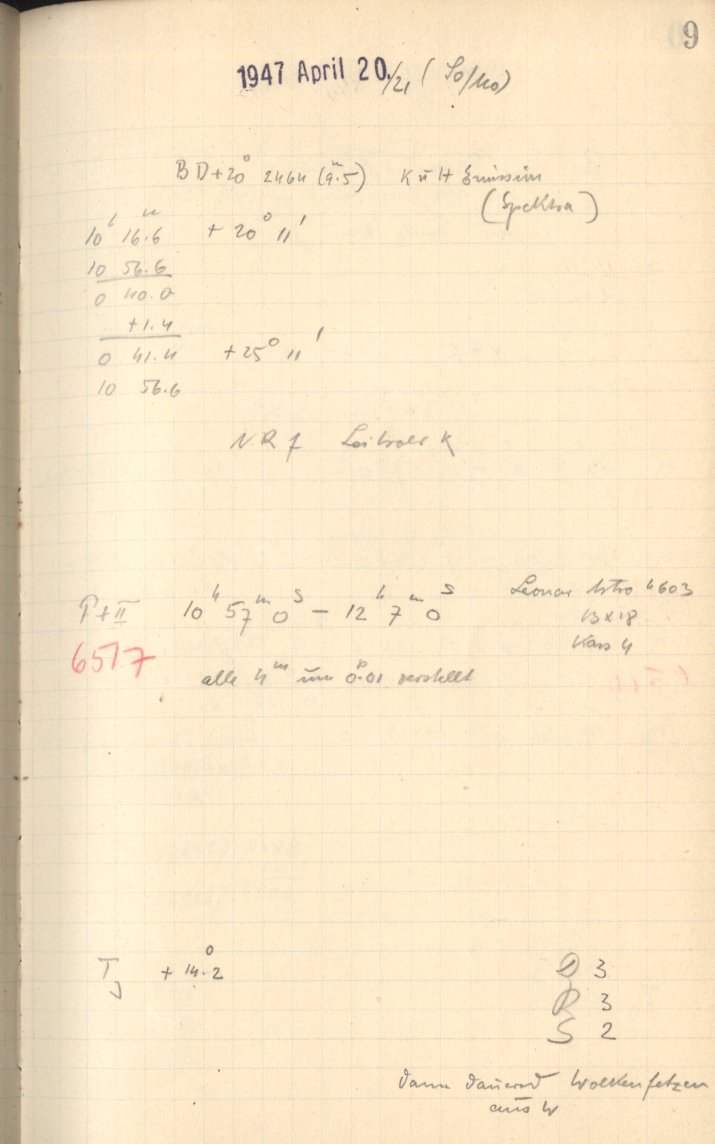 9
1947 April 20./21 (So/Mo)
BD+20° 2464 (9.m5) K u H Emission
(Spektra)
10h 16.m6 + 20° 11'
10 56.6
0 40.0
+1.4
0 41.4 + 25° 11'
10 56.6
NR f Leitrohr K
P+II 10h 57m 0s – 12h 7m 0s Leonar Astro 4603
13x18
Kass 4
6517
alle 4m um 0.p01 verstellt
TJ + 14.°2 D 3
R 3
S 2
dann dauernd Wolkenfetzen
aus W